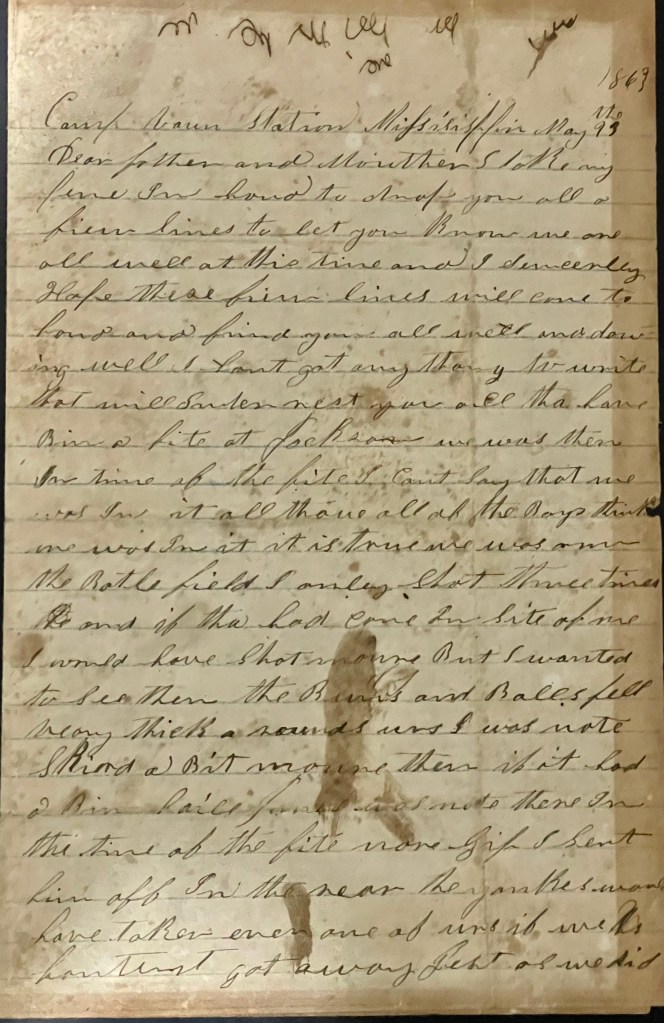 1863
Camp Vaun Station Mississippi May the 23
Dear father and Mouther I take my
pene In hand to drop you all a
fiew lines to let you Know we are
all well at this time and I sincerley
Hope these fiew lines will come to
hand and find you all well and dow-
ing well I hant got any thang to write
that will Inter rest you all tha have
Bin a fite at Jackson we was then
In time of the fite I cant Say that we
was In it all thoue all of the Boys think
we was In it it is true we was
the Batle field I onley Shot three times
and if tha had come In Site of me
I would have Shot moure But I wanted
to See them the Bums and Balls fell
veary thick a rounds urs I was note
Skiord a Bit moure then if it had
a Bin haile was note there In
the time of the fite nore Gip I Sent
him off In the rear the yankes would
have taken even one of urs if we
hant got a way Jest as we did